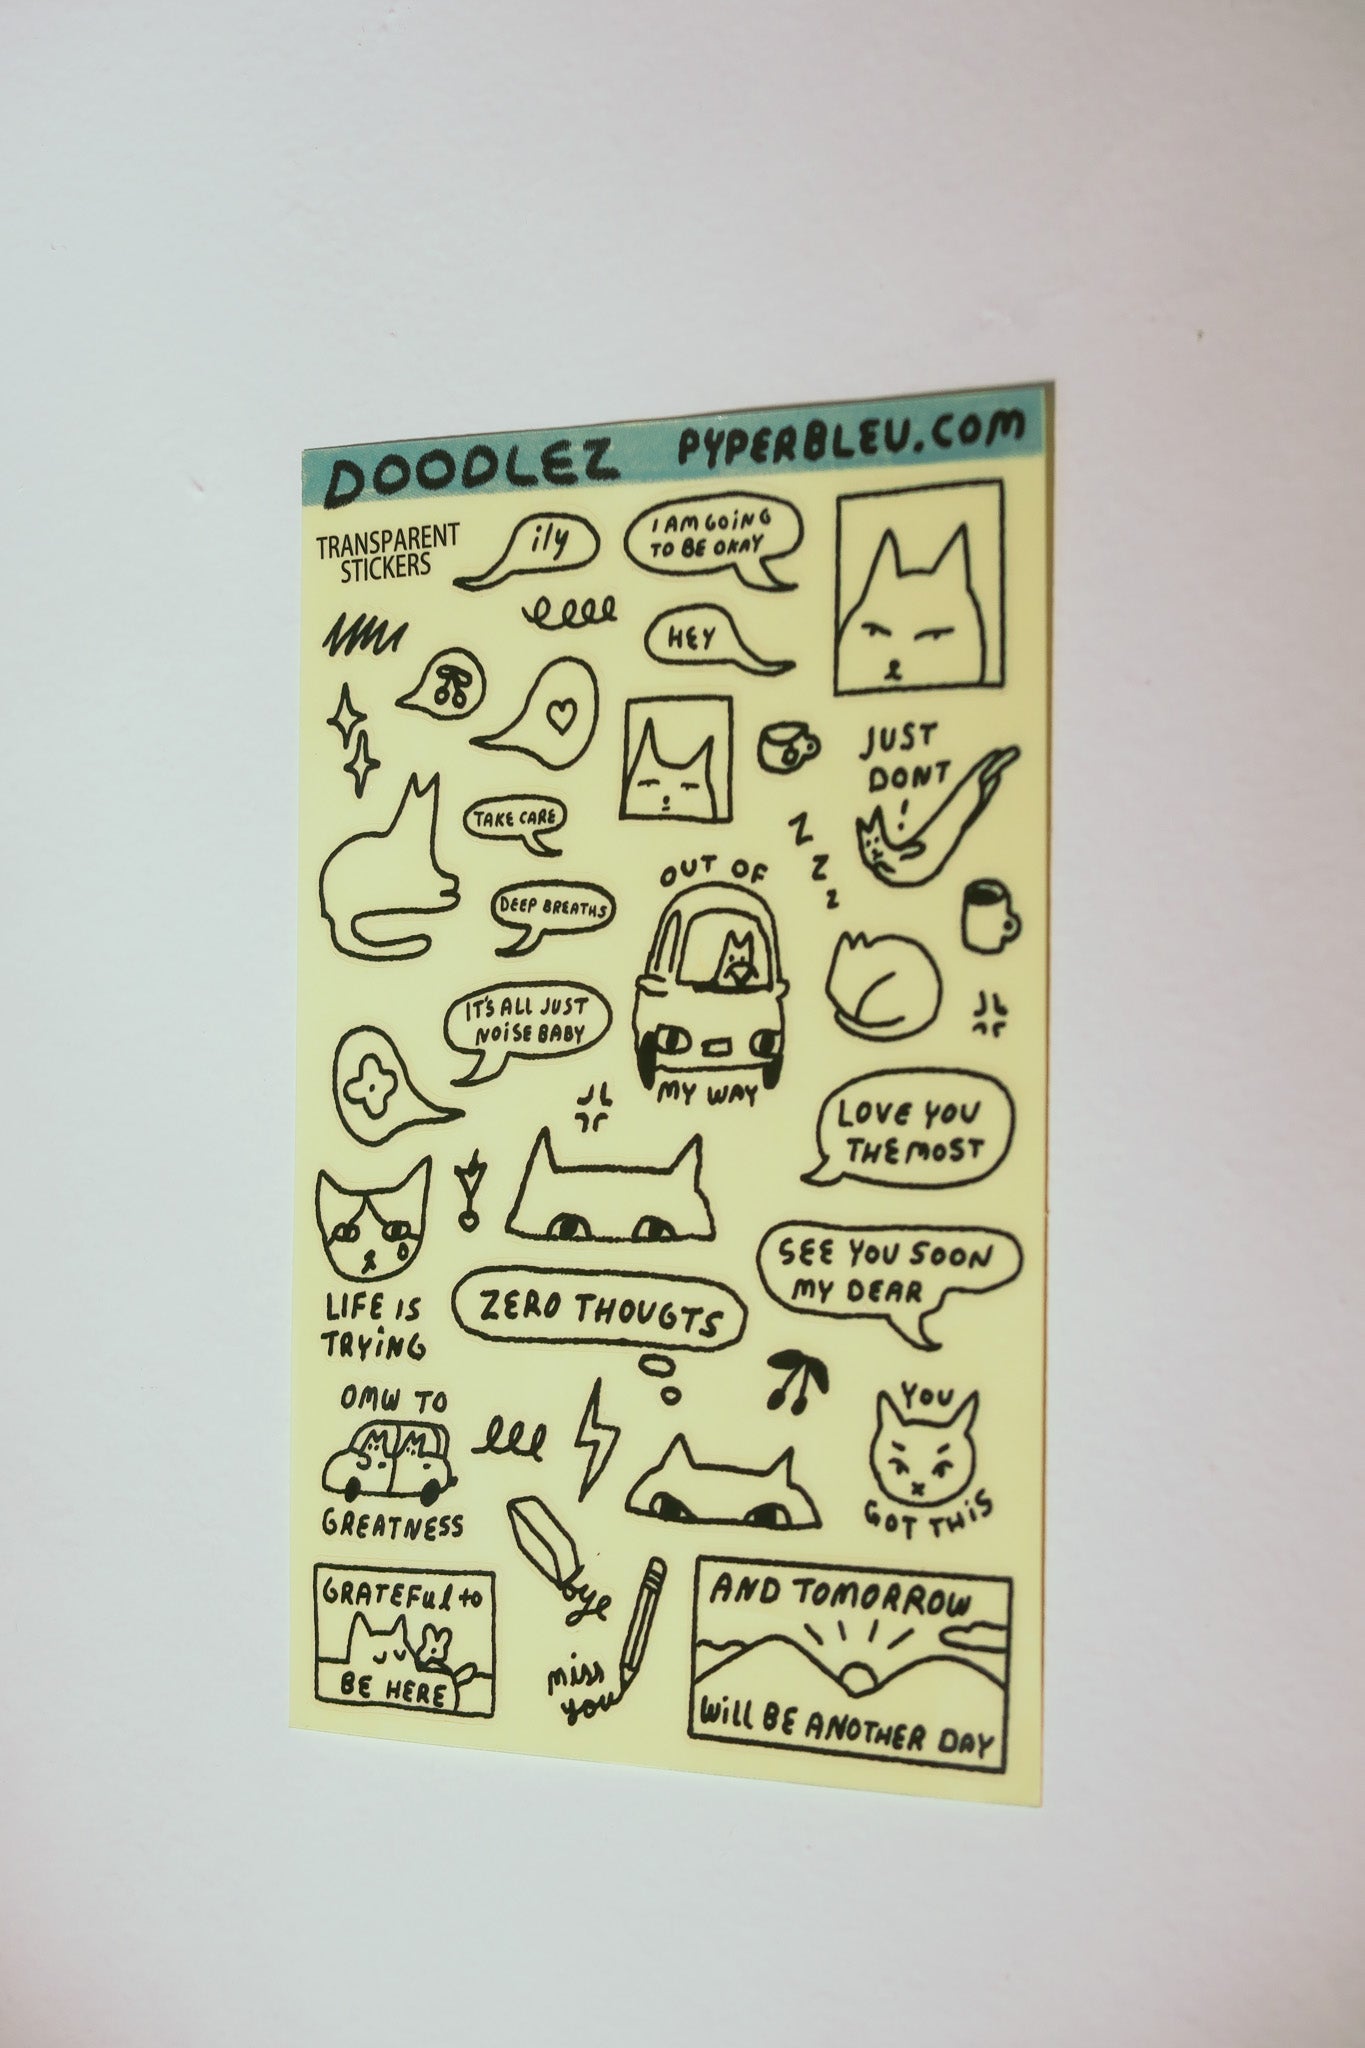 DOODLEZ PYPERBLEU.COM
TRANSPARENT
STICKERS
ily
I AM GOiNG
TO BE OKAY
HEY
JUST
DONT
!
TAKE CARE
Z
Z
Z
OUT OF
MY WAY
DEEP BREATHS
IT'S ALL JUST
NOiSE BABY
LOVE YOU
THE MOST
SEE YOU SOON
MY DEAR
LIFE IS
TRYiNG
ZERO THOUGTS
OMW TO
GREATNESS
YOU
GOT THiS
bye
GRATEFul to
BE HERE
miss
you
AND TOMORROW
Will BE ANOTHER DAY